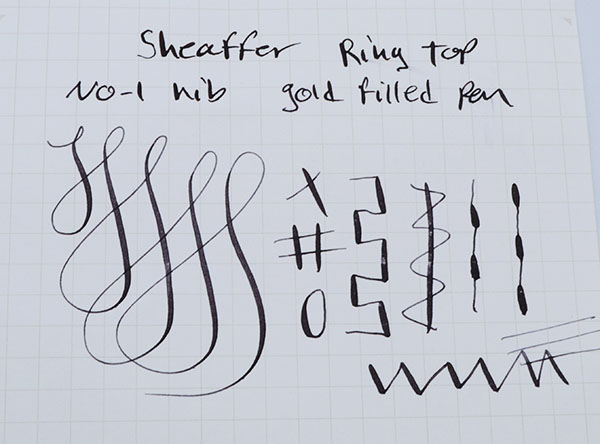 Sheaffer Ring Top
No-1 nib gold filled pen
X
#
O